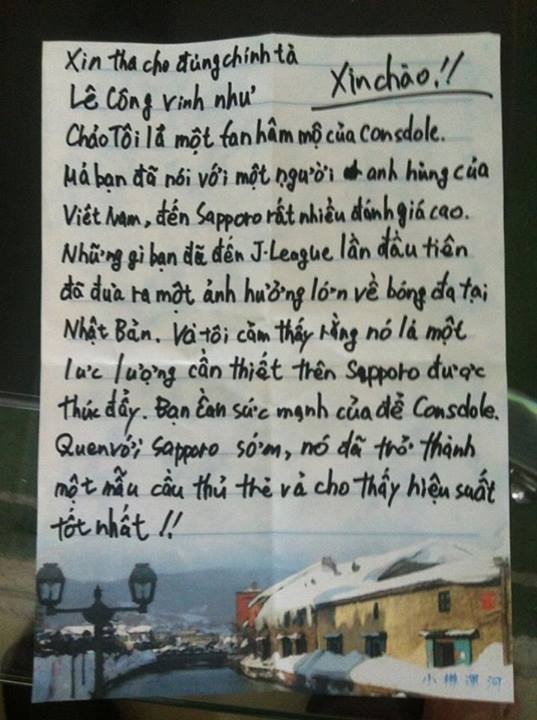 Xin tha cho đúng chính tả
Xin chào!!
Lê Công vinh như
Chảo Tôi lả một fan hâm mộ của Consdole.
Mả bạn đã nói với một người anh hùng của
Việt Nam, đến Sapporo rất nhiều đánh giá cao.
Những gì bạn đã đến J-League lần đầu tiên
đã đưa ra một ảnh hưởng lớn về bóng đạ tại
Nhật Bản. Và tôi cảm thấy rằng nó lả một
lưc lượng cần thiết trên Sapporo được
thúc đẩy. Bạn Cần sức mạnh của để Consdole.
Quen với Sapporo sớm, nó đã trở thành
một mẫu cầu thủ trẻ vả cho thấy hiệu suất
tốt nhất!!
小樽運河